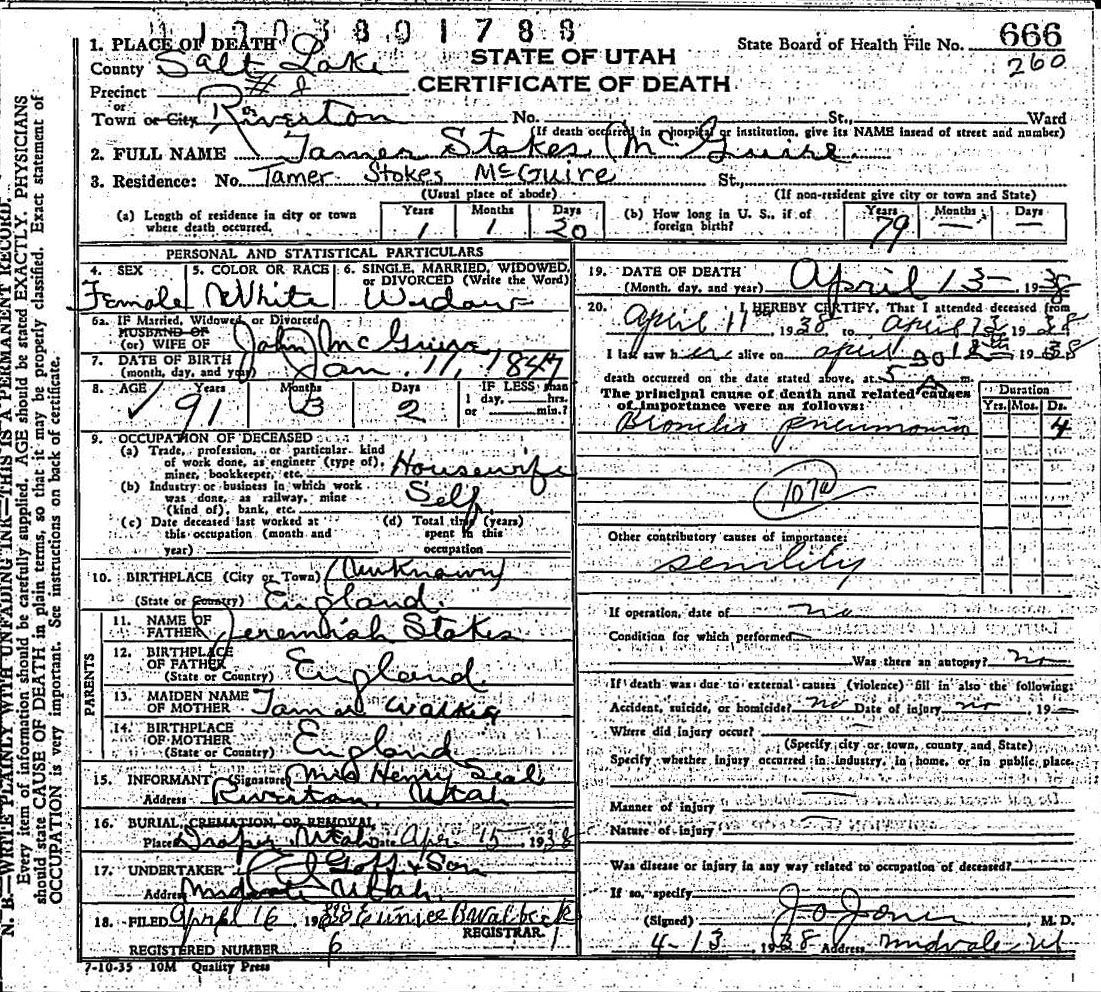 1 1 0 3 8 0 1 7 8 8
1. PLACE OF DEATH
County Salt Lake
Precinct # 8
or
Town or City Riverton No. St., Ward
(If death occurred in a hospital or institution, give its NAME insead of street and number)
STATE OF UTAH
CERTIFICATE OF DEATH
State Board of Health File No. 666
260
2. FULL NAME Tamer Stokes McGuire
3. Residence: No. Tamer Stokes McGuire St.,
(Usual place of abode) (If non-resident give city or town and State)
(a) Length of residence in city or town where death occurred. Years 1 Months 1 Days 20
(b) How long in U. S., if of foreign birth? Years 79 Months — Days —
PERSONAL AND STATISTICAL PARTICULARS
4. SEX Female
5. COLOR OR RACE White
6. SINGLE, MARRIED, WIDOWED, or DIVORCED (Write the Word) Widow
6a. IF Married, Widowed, or Divorced
HUSBAND OF
(or) WIFE OF John McGuire
7. DATE OF BIRTH
(month, day, and year) Jan. 11, 1847
8. AGE Years 91 Months 3 Days 2 IF LESS than 1 day, hrs. or min.?
9. OCCUPATION OF DECEASED
(a) Trade, profession, or particular kind of work done, as engineer (type of), miner, bookkeeper, etc. Housewife
(b) Industry or business in which work was done, as railway, mine (kind of), bank, etc. Self
(c) Date deceased last worked at this occupation (month and year)
(d) Total time (years) spent in this occupation
10. BIRTHPLACE (City or Town) (Unknown)
(State or Country) England
PARENTS
11. NAME OF FATHER Jeremiah Stokes
12. BIRTHPLACE OF FATHER
(State or Country) England
13. MAIDEN NAME OF MOTHER Tamer Walker
14. BIRTHPLACE OF MOTHER
(State or Country) England
15. INFORMANT (Signature) Mrs Henry Seal
Address Riverton, Utah
16. BURIAL CREMATION OR REMOVAL
Place Draper, Utah Date Apr. 15 1938
17. UNDERTAKER Goff & Son
Address Midvale Utah
18. FILED April 16 1938 Eunice B.
REGISTRAR.
REGISTERED NUMBER 6
7-10-35 10M Quality Press
19. DATE OF DEATH
(Month, day, and year) April 13 1938
20. I HEREBY CERTIFY, That I attended deceased from
April 11 1938 to April 1938
I last saw her alive on April 12th 1938
death occurred on the date stated above, at 5 30 A m.
The principal cause of death and related causes of importance were as follows:
Duration
Yrs. Mos. Ds.
Broncho pneumonia 4
107a
Other contributory causes of importance:
senility
If operation, date of no
Condition for which performed
Was there an autopsy? no
If death was due to external causes (violence) fill in also the following:
Accident, suicide, or homicide? no Date of injury no, 19—
Where did injury occur?
(Specify city or town, county and State)
Specify whether injury occurred in industry, in home, or in public place.
Manner of injury
Nature of injury
Was disease or injury in any way related to occupation of deceased?
If so, specify
(Signed) Jo Jones M. D.
4-13 1938 Address Midvale, Ut
N. B.—WRITE PLAINLY WITH UNFADING INK—THIS IS A PERMANENT RECORD.
Every item of information should be carefully supplied. AGE should be stated EXACTLY. PHYSICIANS
should state CAUSE OF DEATH in plain terms, so that it may be properly classified. Exact statement of
OCCUPATION is very important. See instructions on back of certificate.